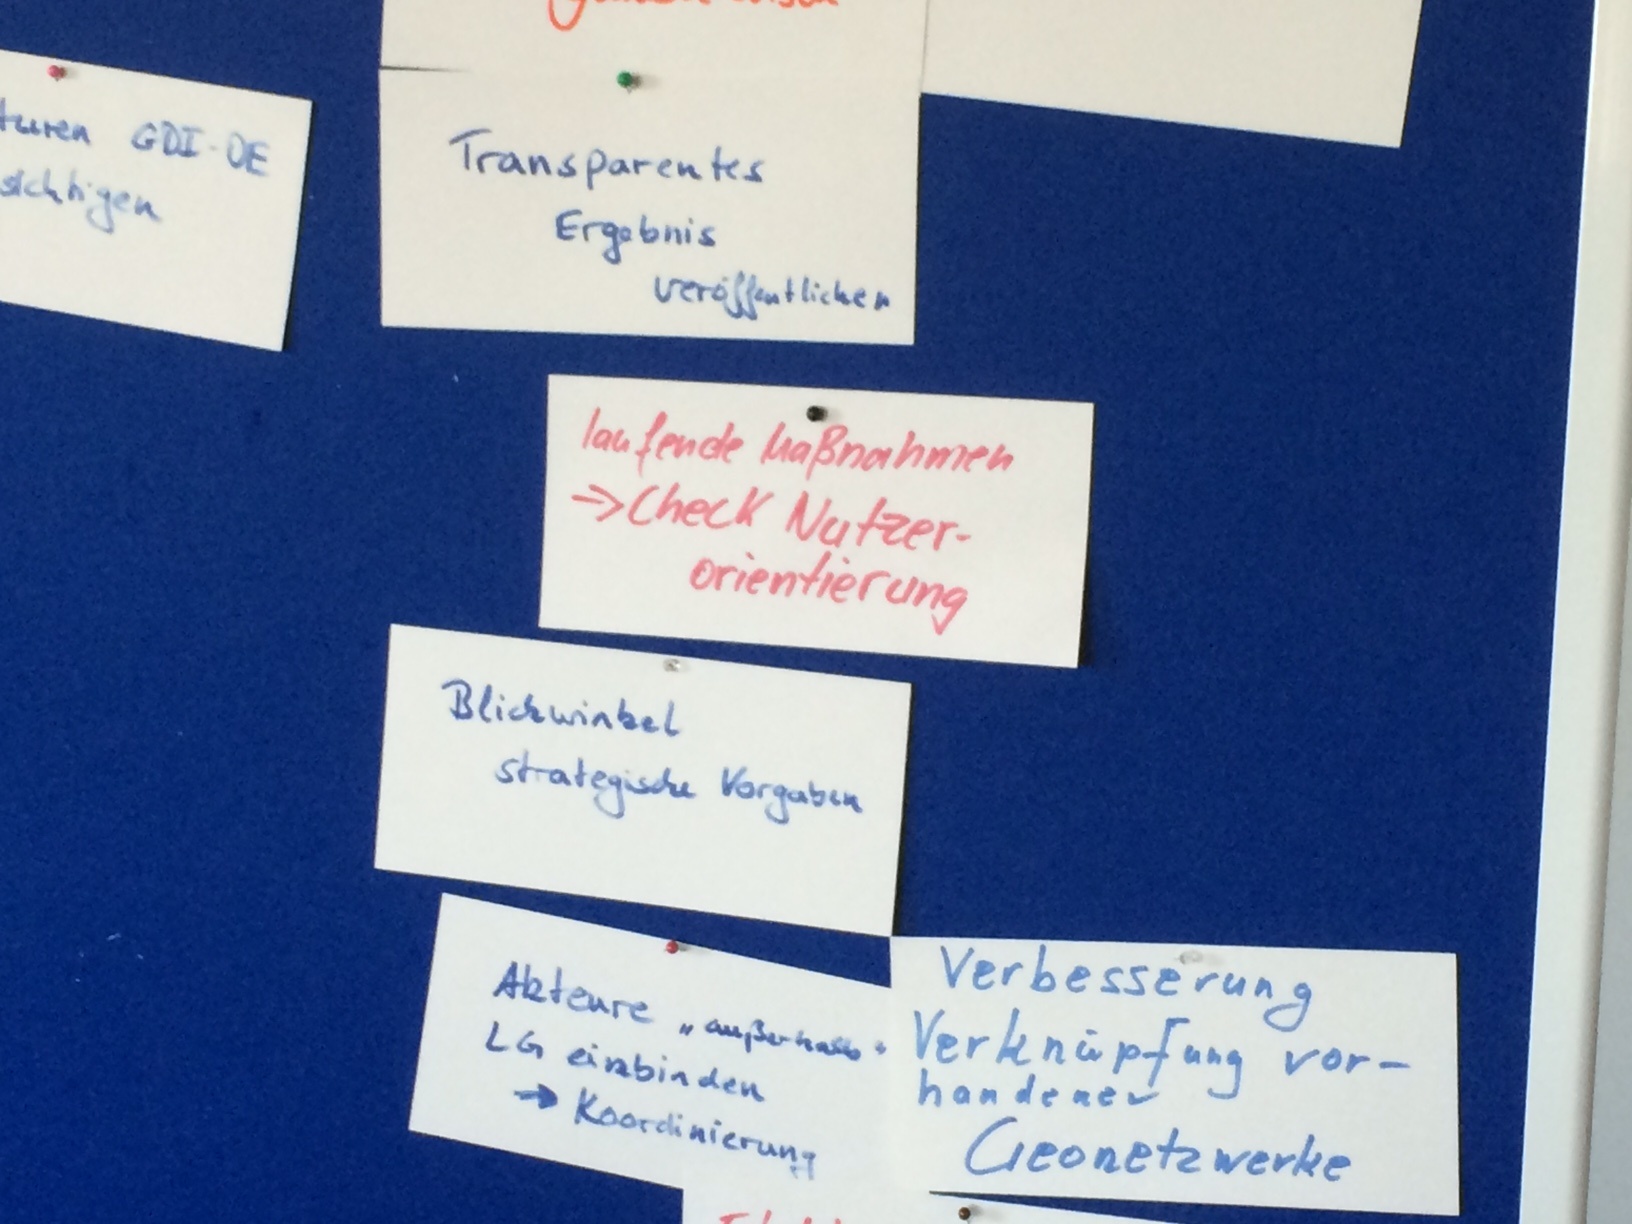 GDI-DE
sichtigen
Transparentes
Ergebnis
veröffentlichen
laufende Maßnahmen
→ Check Nutzer-
orientierung
Blickwinkel
strategische Vorgaben
Akteure „außerhalb"
LG einbinden
→ Koordinierung
Verbesserung
Verknüpfung vor-
handener
Geonetzwerke